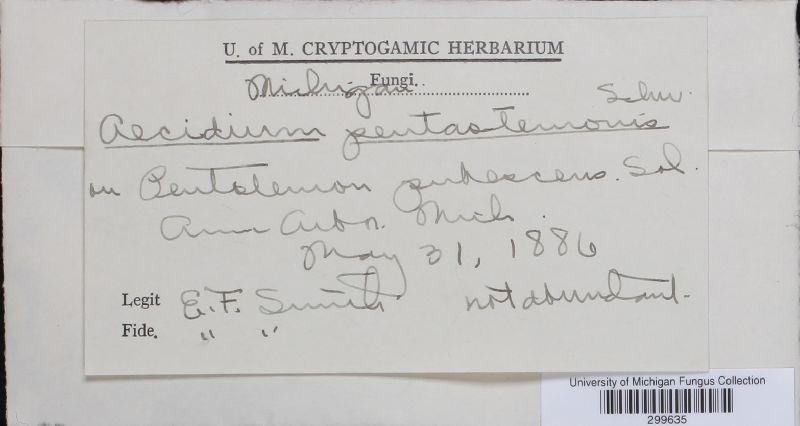 U. of M. CRYPTOGAMIC HERBARIUM
Michigan Fungi.
Schw.
Aecidium pentastemonis
on Pentstemon pubescens. Sol.
Ann Arbor. Mich.
May 31, 1886
Legit E. F. Smith not abundant.
Fide. " "
University of Michigan Fungus Collection
299635